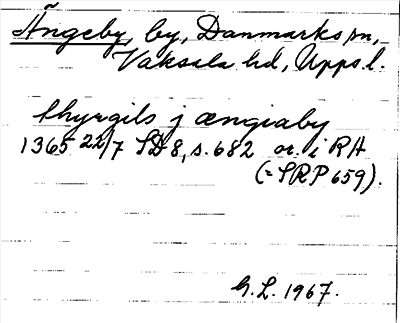 Ängeby, by, Danmarks sn,
Vaksala hd, Upps.l.
thyrgils j ængiaby
1365 22/7 SD 8, s. 682 or. i RA
(= SRP 659).
G. L. 1967.